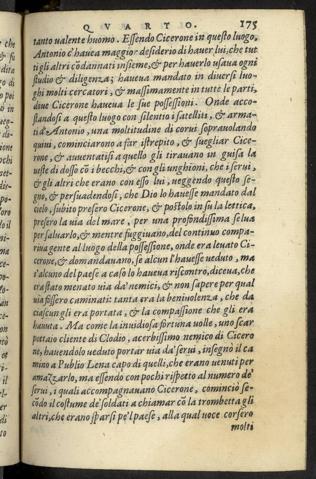 QVARTO. 175
tanto valente huomo. Essendo Cicerone in questo luogo,
Antonio c'haueа maggior desiderio di hauer lui, che tut
ti gli altri cōdannati insieme, & per hauerlo usaua ogni
studio & diligenza; haueua mandato in diuersi luo-
ghi molti cercatori, & massimamente in tutte le parti,
doue Cicerone haueua le sue possessioni. Onde acco-
standosi a questo luogo con silentio i satelliti, & arma-
ti d'Antonio, una moltitudine di corui soprauolando
quiui, cominciarono a far istrepito, & suegliar Cice-
rone, & auuentatisi a quello gli tirauano in guisa la
ueste di dosso cō i becchi, & con gli unghioni, che i serui,
& gli altri che erano con esso lui, ueggendo questo se-
gno, & persuadendosi, che Dio lo hauesse mandato dal
cielo, subito presero Cicerone, & postolo in su la lettica,
presero la uia del mare, per una profondissima selua
per saluarlo, & mentre fuggiuano, del continuo compa-
riua gente al luogo della possessione, onde era leuato Ci-
cerone, & domandauano, se alcun l'hauesse ueduto, ma
s'alcuno del paese a caso lo haueua riscontro, diceua, che
era stato menato uia da' nemici, & non sapere per qual
uia fossero caminati: tanta era la beniuolenza, che da
ciascun gli era portata, & la compassione che gli era
hauuta. Ma come la inuidiosa fortuna uolle, uno scar
pettaio cliente di Clodio, acerbissimo nemico di Cicero
ne, hauendolo ueduto portar uia da' serui, insegnò il ca
mino a Publio Lena capo di quelli, che erano uenuti per
amazzarlo, ma essendo con pochi rispetto al numero de'
serui, i quali accompagnauano Cicerone, cominciò se-
cōdo il costume de' soldati a chiamar cō la trombetta gli
altri, che erano sparsi pe'l paese, alla qual uoce corsero
molti